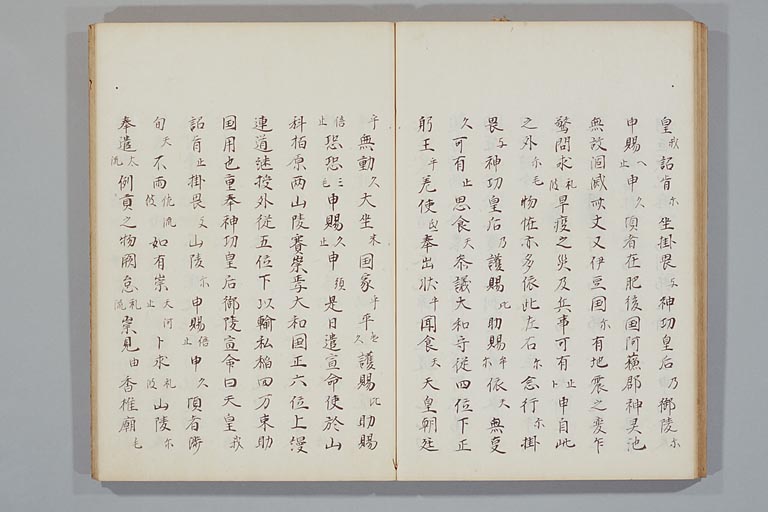 皇我詔旨尓坐掛畏支神功皇后乃御陵尓
申賜へ止申久頃者在肥後国阿蘇郡神灵池
無故涸減卌丈又伊豆国尓有地震之変乍
驚問求礼波旱疫之灾及兵事可有止卜申自此
之外尓毛物恠亦多依此左右尓念行尓掛
畏支神功皇后乃護賜比助賜牟尓依天無事
久可有止思食天参議大和守従四位下正
躬王乎差使氐奉出状乎聞食天天皇朝廷
乎無動久大坐米国家乎平久護賜比助賜
倍止恐恐三毛申賜久止申須是日遣宣命使於山
科柏原両山陵賽崇焉大和国正六位上縵
連道継授外従五位下以輸私稲四万束助
国用也重奉神功皇后御陵宣命曰天皇我
詔旨止掛畏支山陵尓申賜倍止申久頃者渉
旬天不雨佐流波如有祟天河止卜求礼波山陵尓
奉遣太流例貢之物闕怠礼流祟見由香椎廟毛